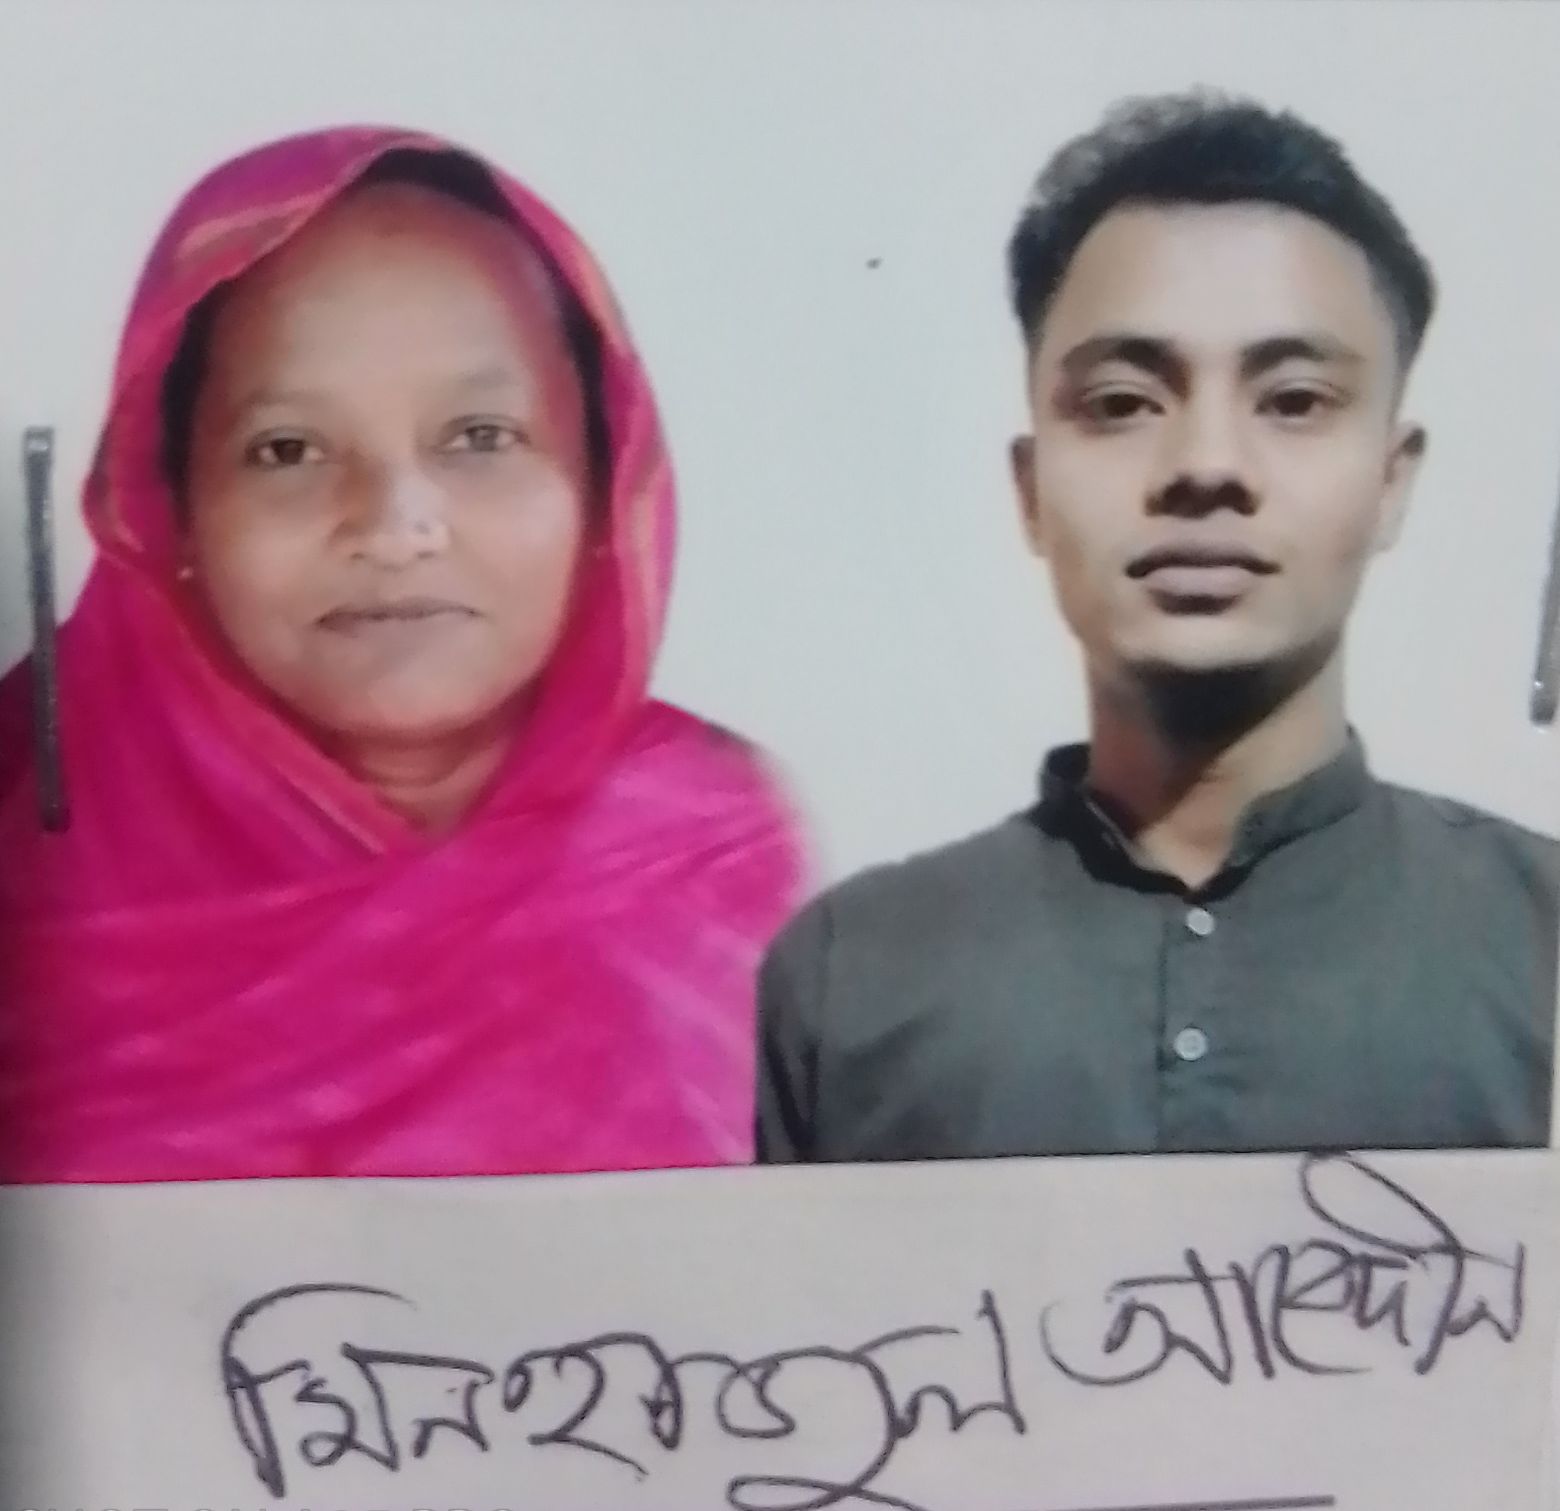 মিনহাজুল আবেদীন